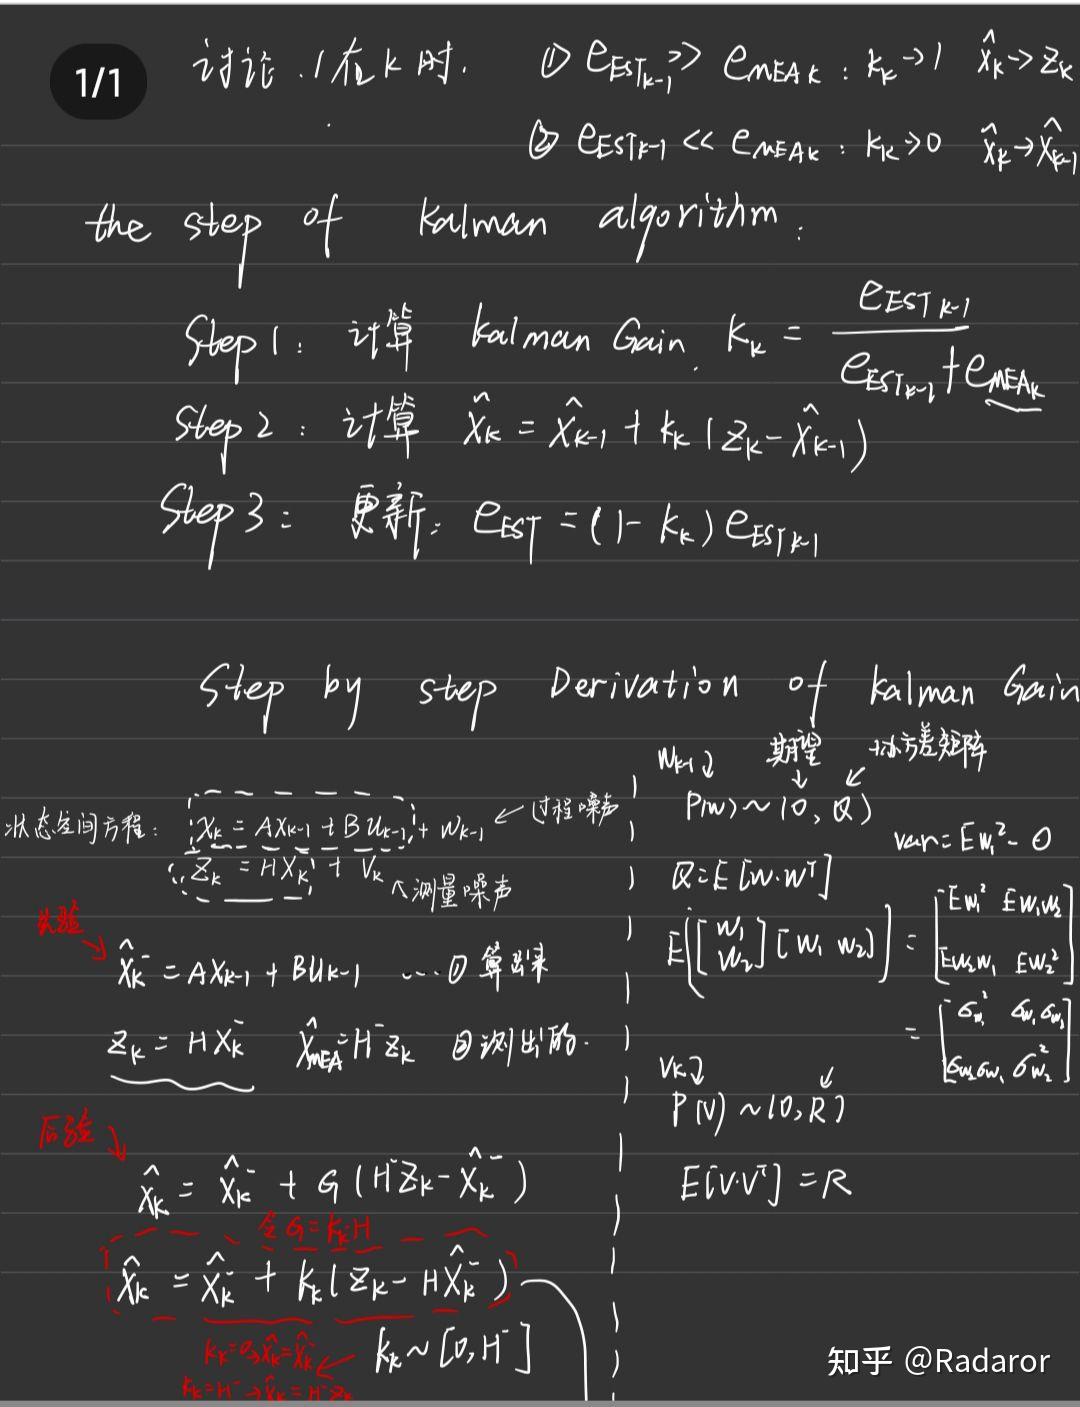 1/1
讨论:1在k时. ① e_EST_{k-1} >> e_MEA_k : k_k→1 x̂_k→z_k
② e_EST_{k-1} << e_MEA_k : k_k→0 x̂_k→x̂_{k-1}
the step of kalman algorithm:
Step 1: 计算 kalman Gain. K_k = e_EST_{k-1} / (e_EST_{k-1} + e_MEA_k)
Step 2: 计算 x̂_k = x̂_{k-1} + k_k (z_k - x̂_{k-1})
Step 3: 更新: e_EST = (1 - k_k) e_EST_{k-1}
Step by step Derivation of kalman Gain
状态空间方程: x_k = Ax_{k-1} + Bu_{k-1} + w_{k-1} ← 过程噪声
z_k = Hx_k + v_k
↖测量噪声
先验
x̂_k^- = Ax_{k-1} + Bu_{k-1} ...① 算出来
z_k = Hx_k^- x̂_MEA = H^- z_k ②测出的.
后验
x̂_k = x̂_k^- + G (H^- z_k - x̂_k^-)
令 G = k_k H
x̂_k = x̂_k^- + k_k (z_k - Hx̂_k^-)
k_k ~ [0, H^-]
k_k = 0, x̂_k = x̂_k^-
k_k = H^- → x̂_k = H^- z_k
w_{k-1} 期望 协方差矩阵
P(w) ~ (0, Q)
var = E w_1^2 - 0
Q = E [w·w^T]
E([w_1 w_2] [w_1 w_2]) = [E w_1^2 E w_1 w_2
E w_2 w_1 E w_2^2]
= [σ_{w_1}^2 σ_{w_1} σ_{w_2}
σ_{w_2} σ_{w_1} σ_{w_2}^2]
v_k
P(v) ~ (0, R)
E[v·v^T] = R
知乎 @Radaror